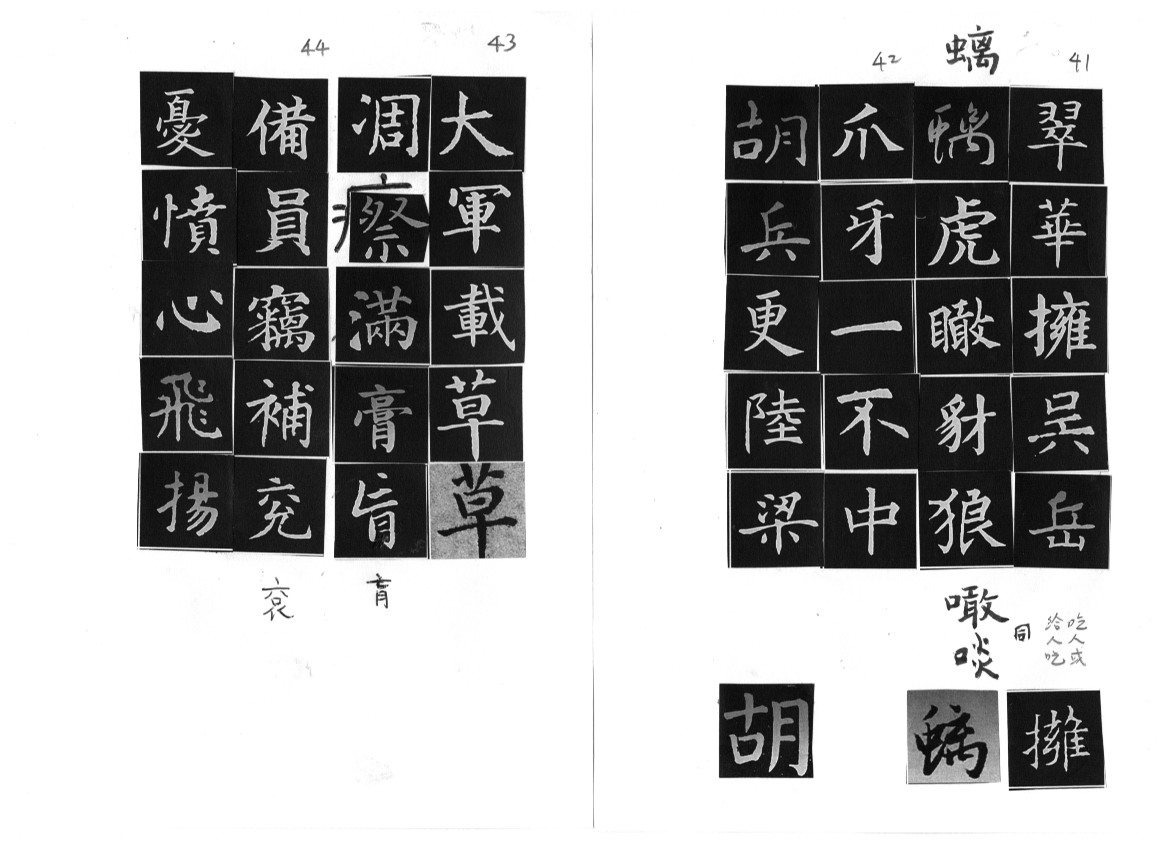 41
翠華擁吳岳
螭
螭虎瞰豺狼
42
爪牙一不中
胡兵更陸梁
噉啖
同
吃人或
给人吃
擁
螭
胡
43
大軍載草草
凋瘵滿膏肓
肓
44
備員竊補袞
袞
憂憤心飛揚